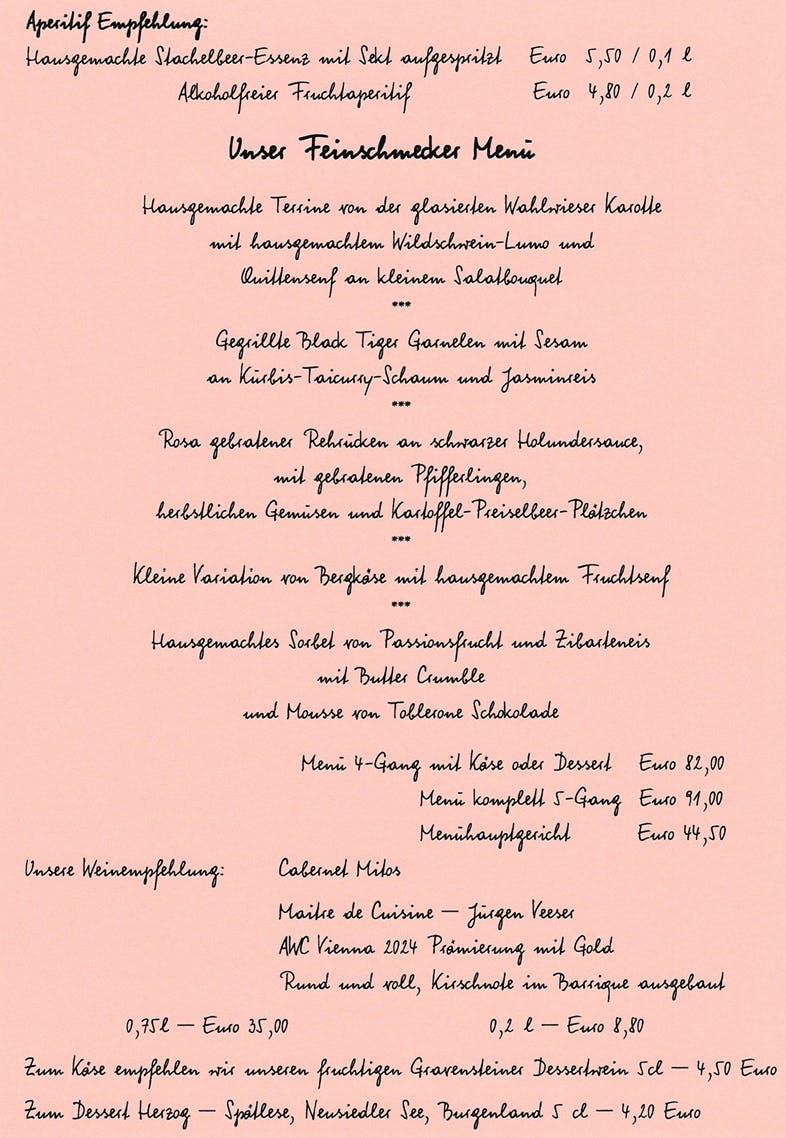 Aperitif Empfehlung:
Hausgemachte Stachelbeer-Essenz mit Sekt aufgespritzt Euro 5,50 / 0,1 l
Alkoholfreier Fruchtaperitif Euro 4,80 / 0,2 l
Unser Feinschmecker Menü
Hausgemachte Terrine von der glasierten Wahlwieser Karotte
mit hausgemachtem Wildschwein-Lumo und
Quittensenf an kleinem Salatbouquet
***
Gegrillte Black Tiger Garnelen mit Sesam
an Kürbis-Taicurry-Schaum und Jasminreis
***
Rosa gebratener Rehrücken an schwarzer Holundersauce,
mit gebratenen Pfifferlingen,
herbstlichen Gemüsen und Kartoffel-Preiselbeer-Plätzchen
***
Kleine Variation von Bergkäse mit hausgemachtem Fruchtsenf
***
Hausgemachtes Sorbet von Passionsfrucht und Zibarteneis
mit Butter Crumble
und Mousse von Toblerone Schokolade
Menü 4-Gang mit Käse oder Dessert Euro 82,00
Menü komplett 5-Gang Euro 91,00
Menühauptgericht Euro 44,50
Unsere Weinempfehlung: Cabernet Mitos
Maitre de Cuisine – Jürgen Veeser
AWC Vienna 2024 Prämierung mit Gold
Rund und voll, Kirschnote im Barrique ausgebaut
0,75l – Euro 35,00 0,2 l – Euro 8,80
Zum Käse empfehlen wir unseren fruchtigen Gravensteiner Dessertwein 5cl – 4,50 Euro
Zum Dessert Herzog – Spätlese, Neusiedler See, Burgenland 5 cl – 4,20 Euro